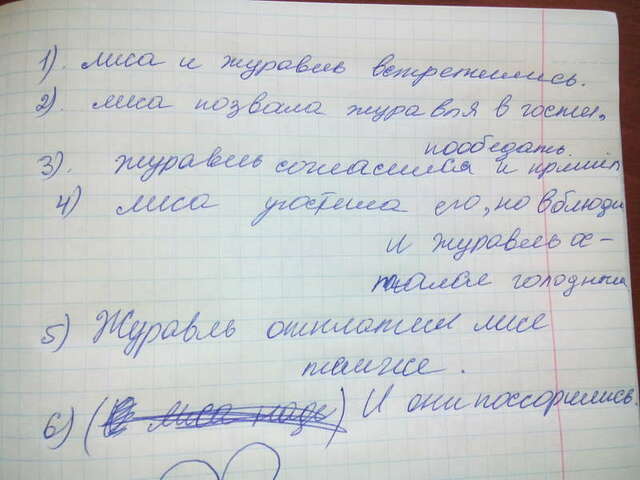 1). лиса и журавль встретились.
2). лиса позвала журавля в гости.
пообедать.
3). журавль согласился и пришёл
4) лиса угостила его, но в блюди
и журавль о-
тался голодным
5) Журавль отплатил лисе
также.
6) (В лиса наде) И они поссорились.